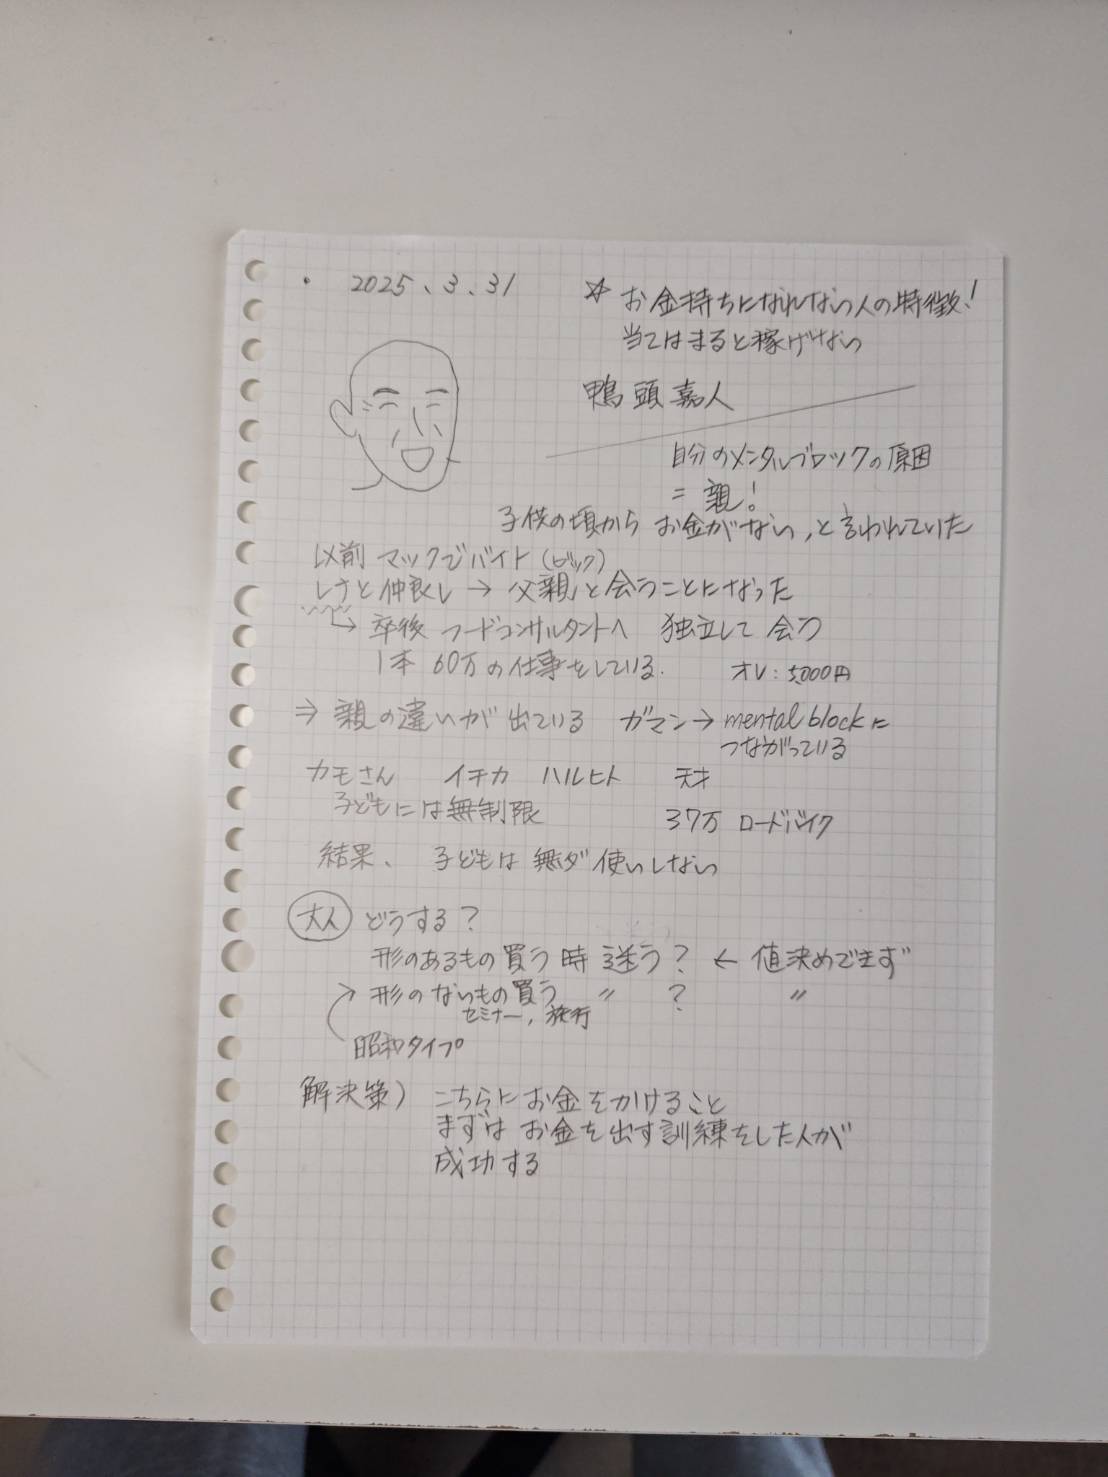 ・ 2025、3、31
☆ お金持ちになれない人の特徴!
当てはまると稼げない
鴨頭嘉人
自分のメンタルブロックの原因
= 親!
子供の頃から お金がない、と言われていた
以前 マックでバイト(ビック)
しさと仲良し → 父親と会うことになった
→ 卒後 フードコンサルタントへ 独立して 会う
1本 60万の仕事をしている. オレ: 5,000円
⇒ 親の違いが出ている ガマン→ mental blockに
つながっている
カモさん イチカ ハルヒト 天才
子どもには無制限
37万 ロードバイク
結果、 子どもは 無ダ使いしない
大人 どうする?
形のあるもの買う時 迷う? ← 値決めできず
→ 形のないもの買う 〃 ? 〃
セミナー, 旅行
昭和タイプ
解決策) こちらにお金をかけること
まずは お金を出す訓練をした人が
成功する